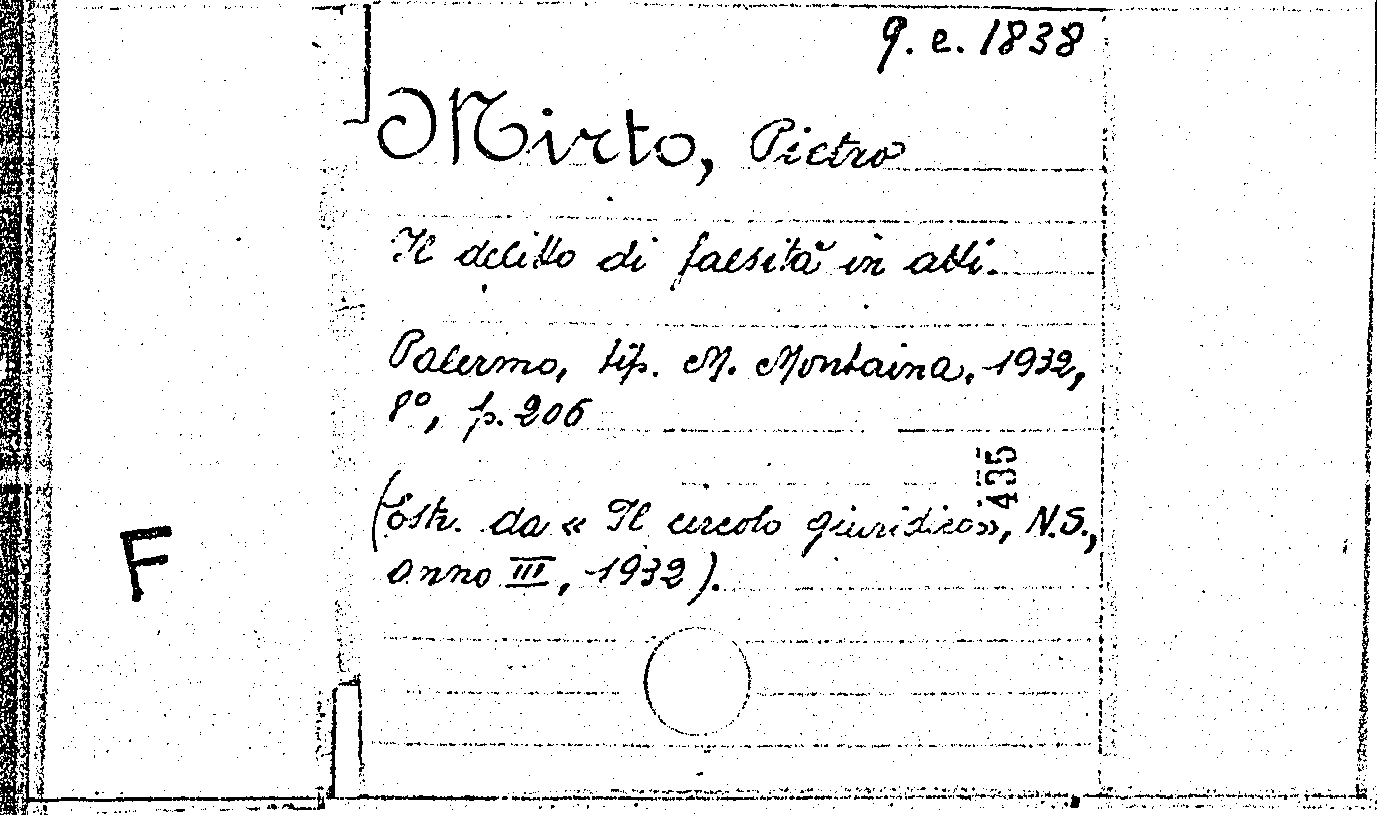 q. e. 1838
Mirto, Pietro
Il delitto di falsità in atti.
Palermo, tip. M. Montaina, 1932,
8°, p. 206
435
(Estr. da « Il circolo giuridico», N.S.,
anno III, 1932).
F